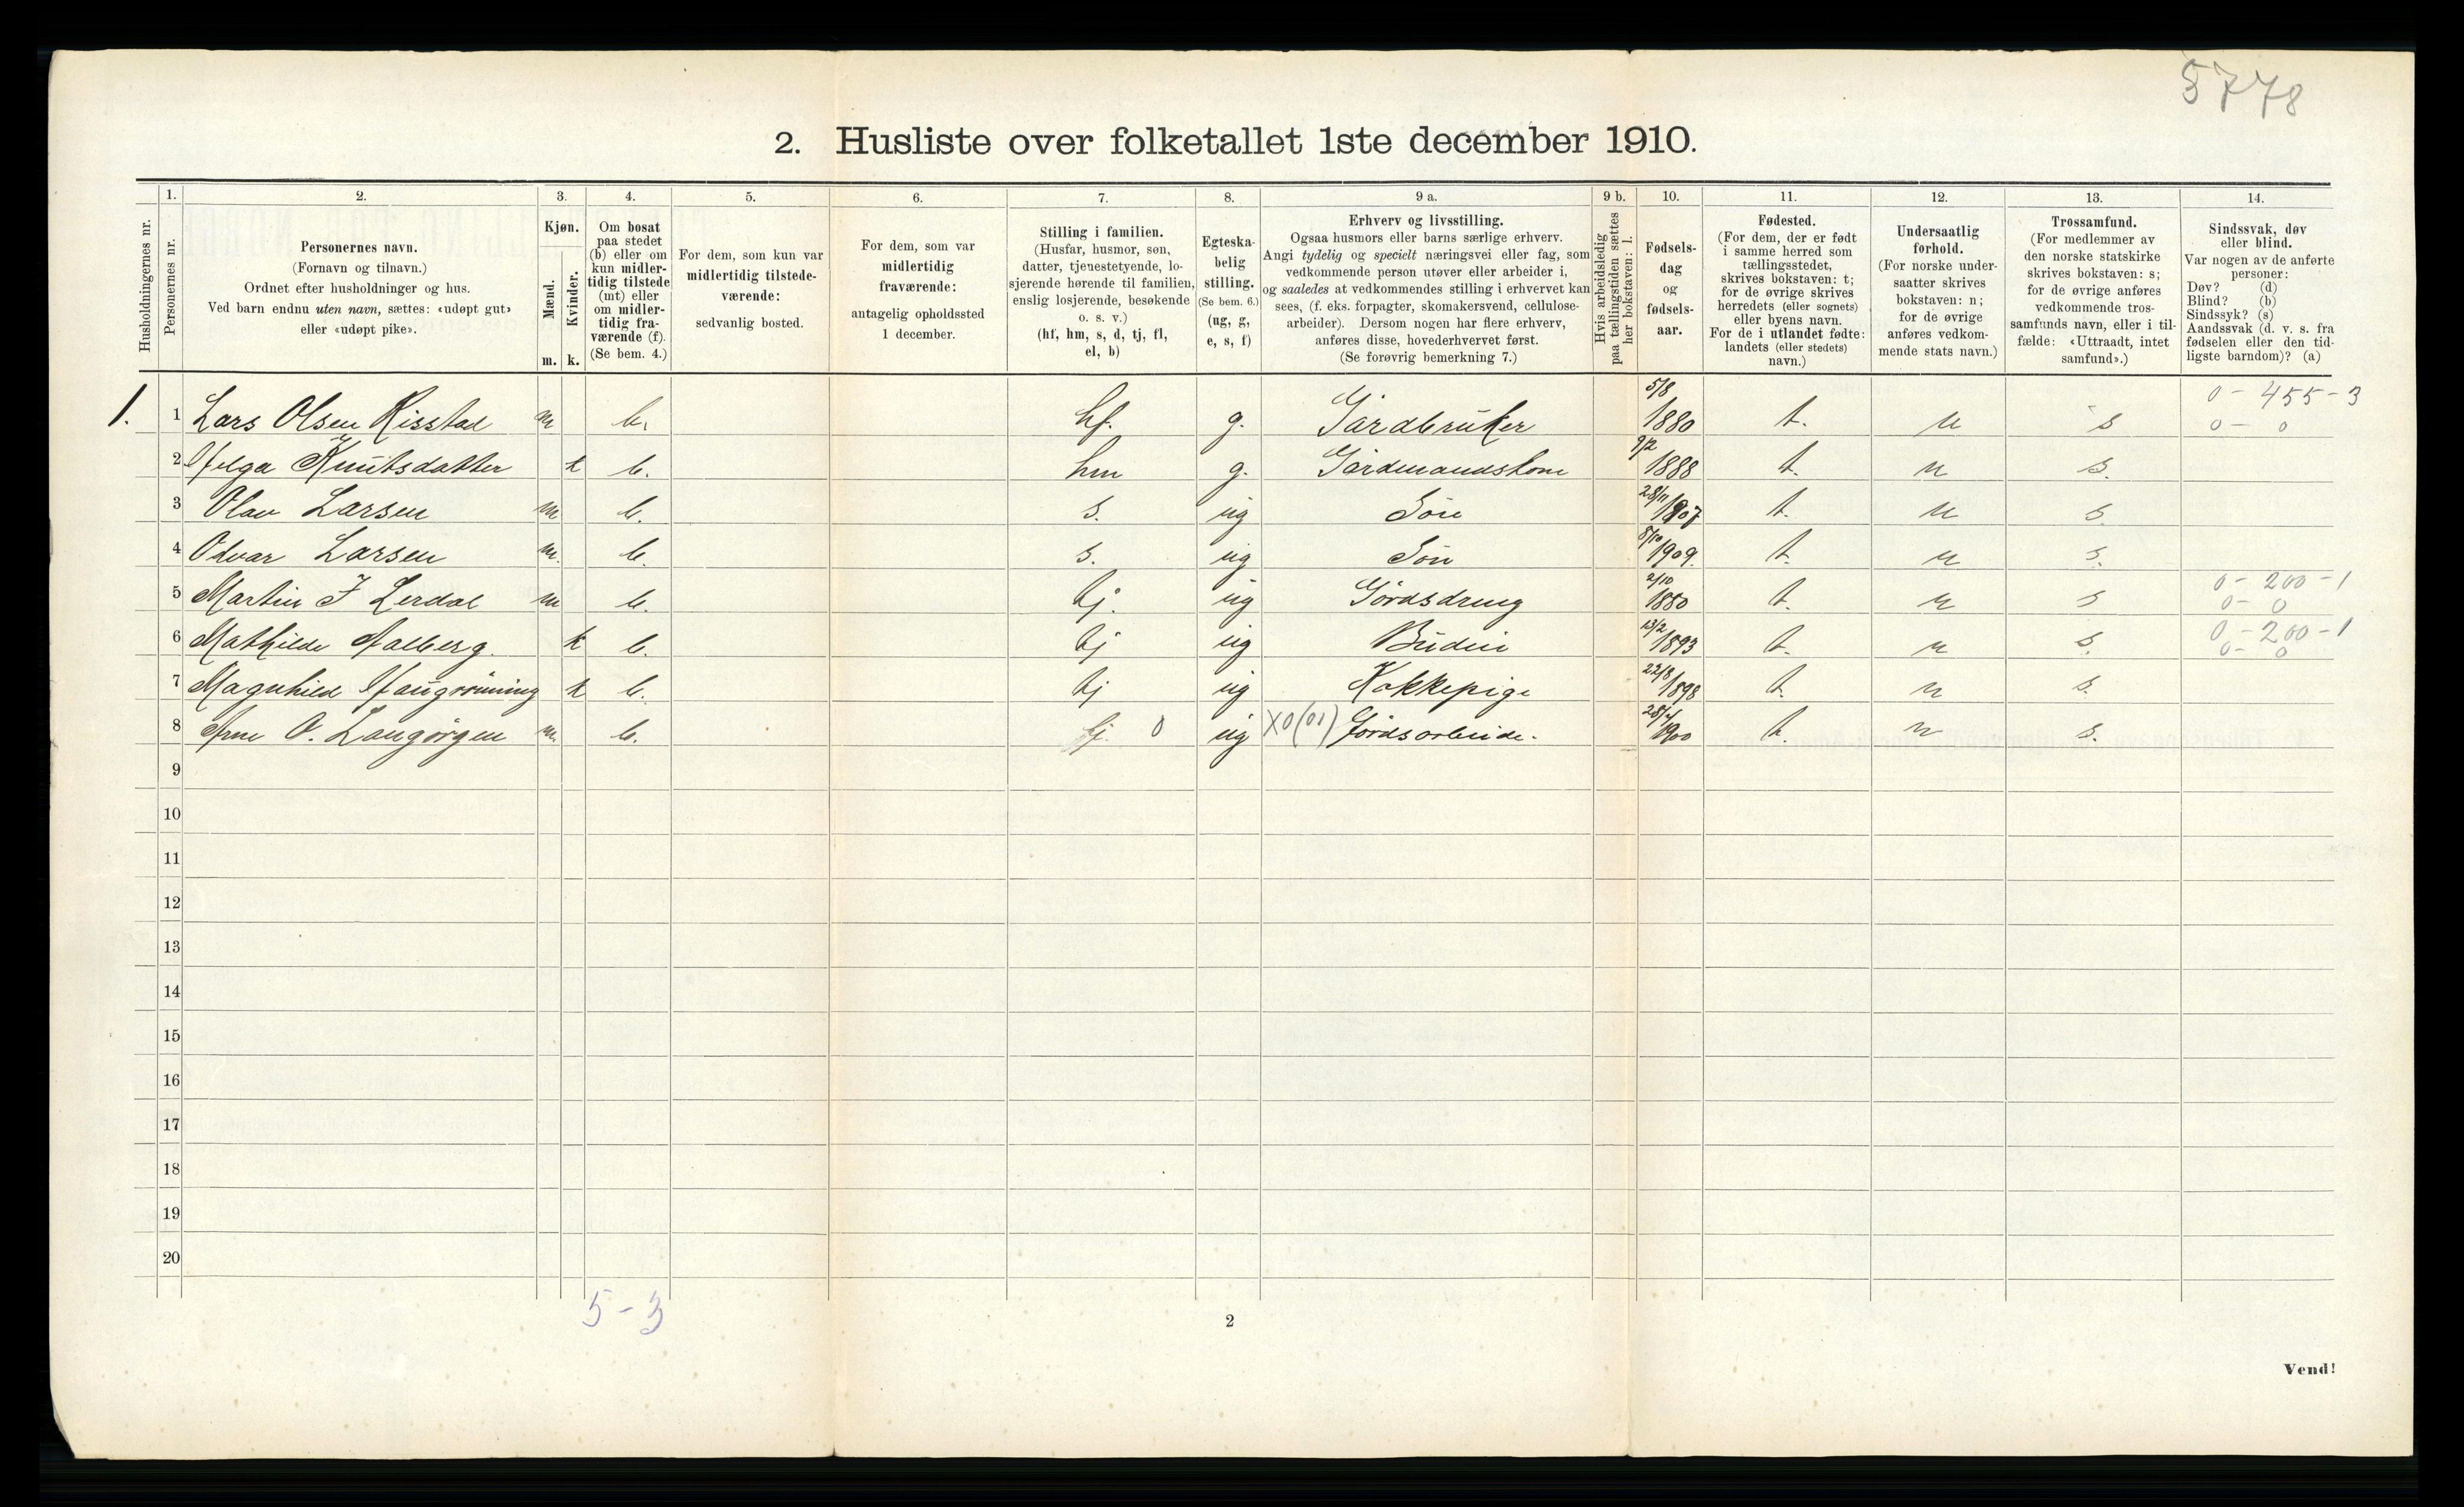 5778
2. Husliste over folketallet 1ste december 1910.
Husholdningernes nr.
1.
Personernes nr.
2.
Personernes navn.
(Fornavn og tilnavn.)
Ordnet efter husholdninger og hus.
Ved barn endnu uten navn, sættes: «udøpt gut»
eller «udøpt pike».
3.
Kjøn.
Mænd.
Kvinder.
m. k.
4.
Om bosat
paa stedet
(b) eller om
kun midler-
tidig tilstede
(mt) eller
om midler-
tidig fra-
værende (f).
(Se bem. 4.)
5.
For dem, som kun var
midlertidig tilstede-
værende:
sedvanlig bosted.
6.
For dem, som var
midlertidig
fraværende:
antagelig opholdssted
1 december.
7.
Stilling i familien.
(Husfar, husmor, søn,
datter, tjenestetyende, lo-
sjerende hørende til familien,
enslig losjerende, besøkende
o. s. v.)
(hf, hm, s, d, tj, fl,
el, b)
8.
Egteska-
belig
stilling.
(Se bem. 6.)
(ug, g,
e, s, f)
9 a.
Erhverv og livsstilling.
Ogsaa husmors eller barns særlige erhverv.
Angi tydelig og specielt næringsvei eller fag, som
vedkommende person utøver eller arbeider i,
og saaledes at vedkommendes stilling i erhvervet kan
sees, (f. eks. forpagter, skomakersvend, cellulose-
arbeider). Dersom nogen har flere erhverv,
anføres disse, hovederhvervet først.
(Se forøvrig bemerkning 7.)
9 b.
Hvis arbeidsledig
paa tællingstiden sættes
her bokstaven: l.
10.
Fødsels-
dag
og
fødsels-
aar.
11.
Fødested.
(For dem, der er født
i samme herred som
tællingsstedet,
skrives bokstaven: t;
for de øvrige skrives
herredets (eller sognets)
eller byens navn.
For de i utlandet fødte:
landets (eller stedets)
navn.)
12.
Undersaatlig
forhold.
(For norske under-
saatter skrives
bokstaven: n;
for de øvrige
anføres vedkom-
mende stats navn.)
13.
Trossamfund.
(For medlemmer av
den norske statskirke
skrives bokstaven: s;
for de øvrige anføres
vedkommende tros-
samfunds navn, eller i til-
fælde: «Uttraadt, intet
samfund».)
14.
Sindssvak, døv
eller blind.
Var nogen av de anførte
personer:
Døv? (d)
Blind? (b)
Sindssyk? (s)
Aandssvak (d. v. s. fra
fødselen eller den tid-
ligste barndom)? (a)
0 - 455 - 3
1. 1 Lars Olsen Risstad m b. hf. g. Gårdbruker 5/8 1880 t. n s 0 - 0
2 Helga Knutsdatter k b. hm g. Gårdmandskone 9/2 1888 t. n s.
3 Olav Larsen m b. s. ug Søn 28/11 1907 t. n s
4 Odvar Larsen m. b. s. ug Søn 8/10 1909. t. n s.
0 - 200 - 1
5 Martin J Lerdal m b. tj. ug Gårdsdreng 2/10 1880 t. n s 0 - 0
0 - 200 - 1
6 Mathilde Aalberg. k b. tj ug Budeie 13/2 1893 t. n s. 0 - 0
7 Magnhild Haugrønning k b. tj ug Kokkepige 22/8 1898 t. n s.
8 Arne O. Langørgen m. b. tj. 0 ug X0(01) Gårdsarbeide. 28/4 1900 t. n s.
9
10
11
12
13
14
15
16
17
18
19
20
5 - 3
2
Vend!